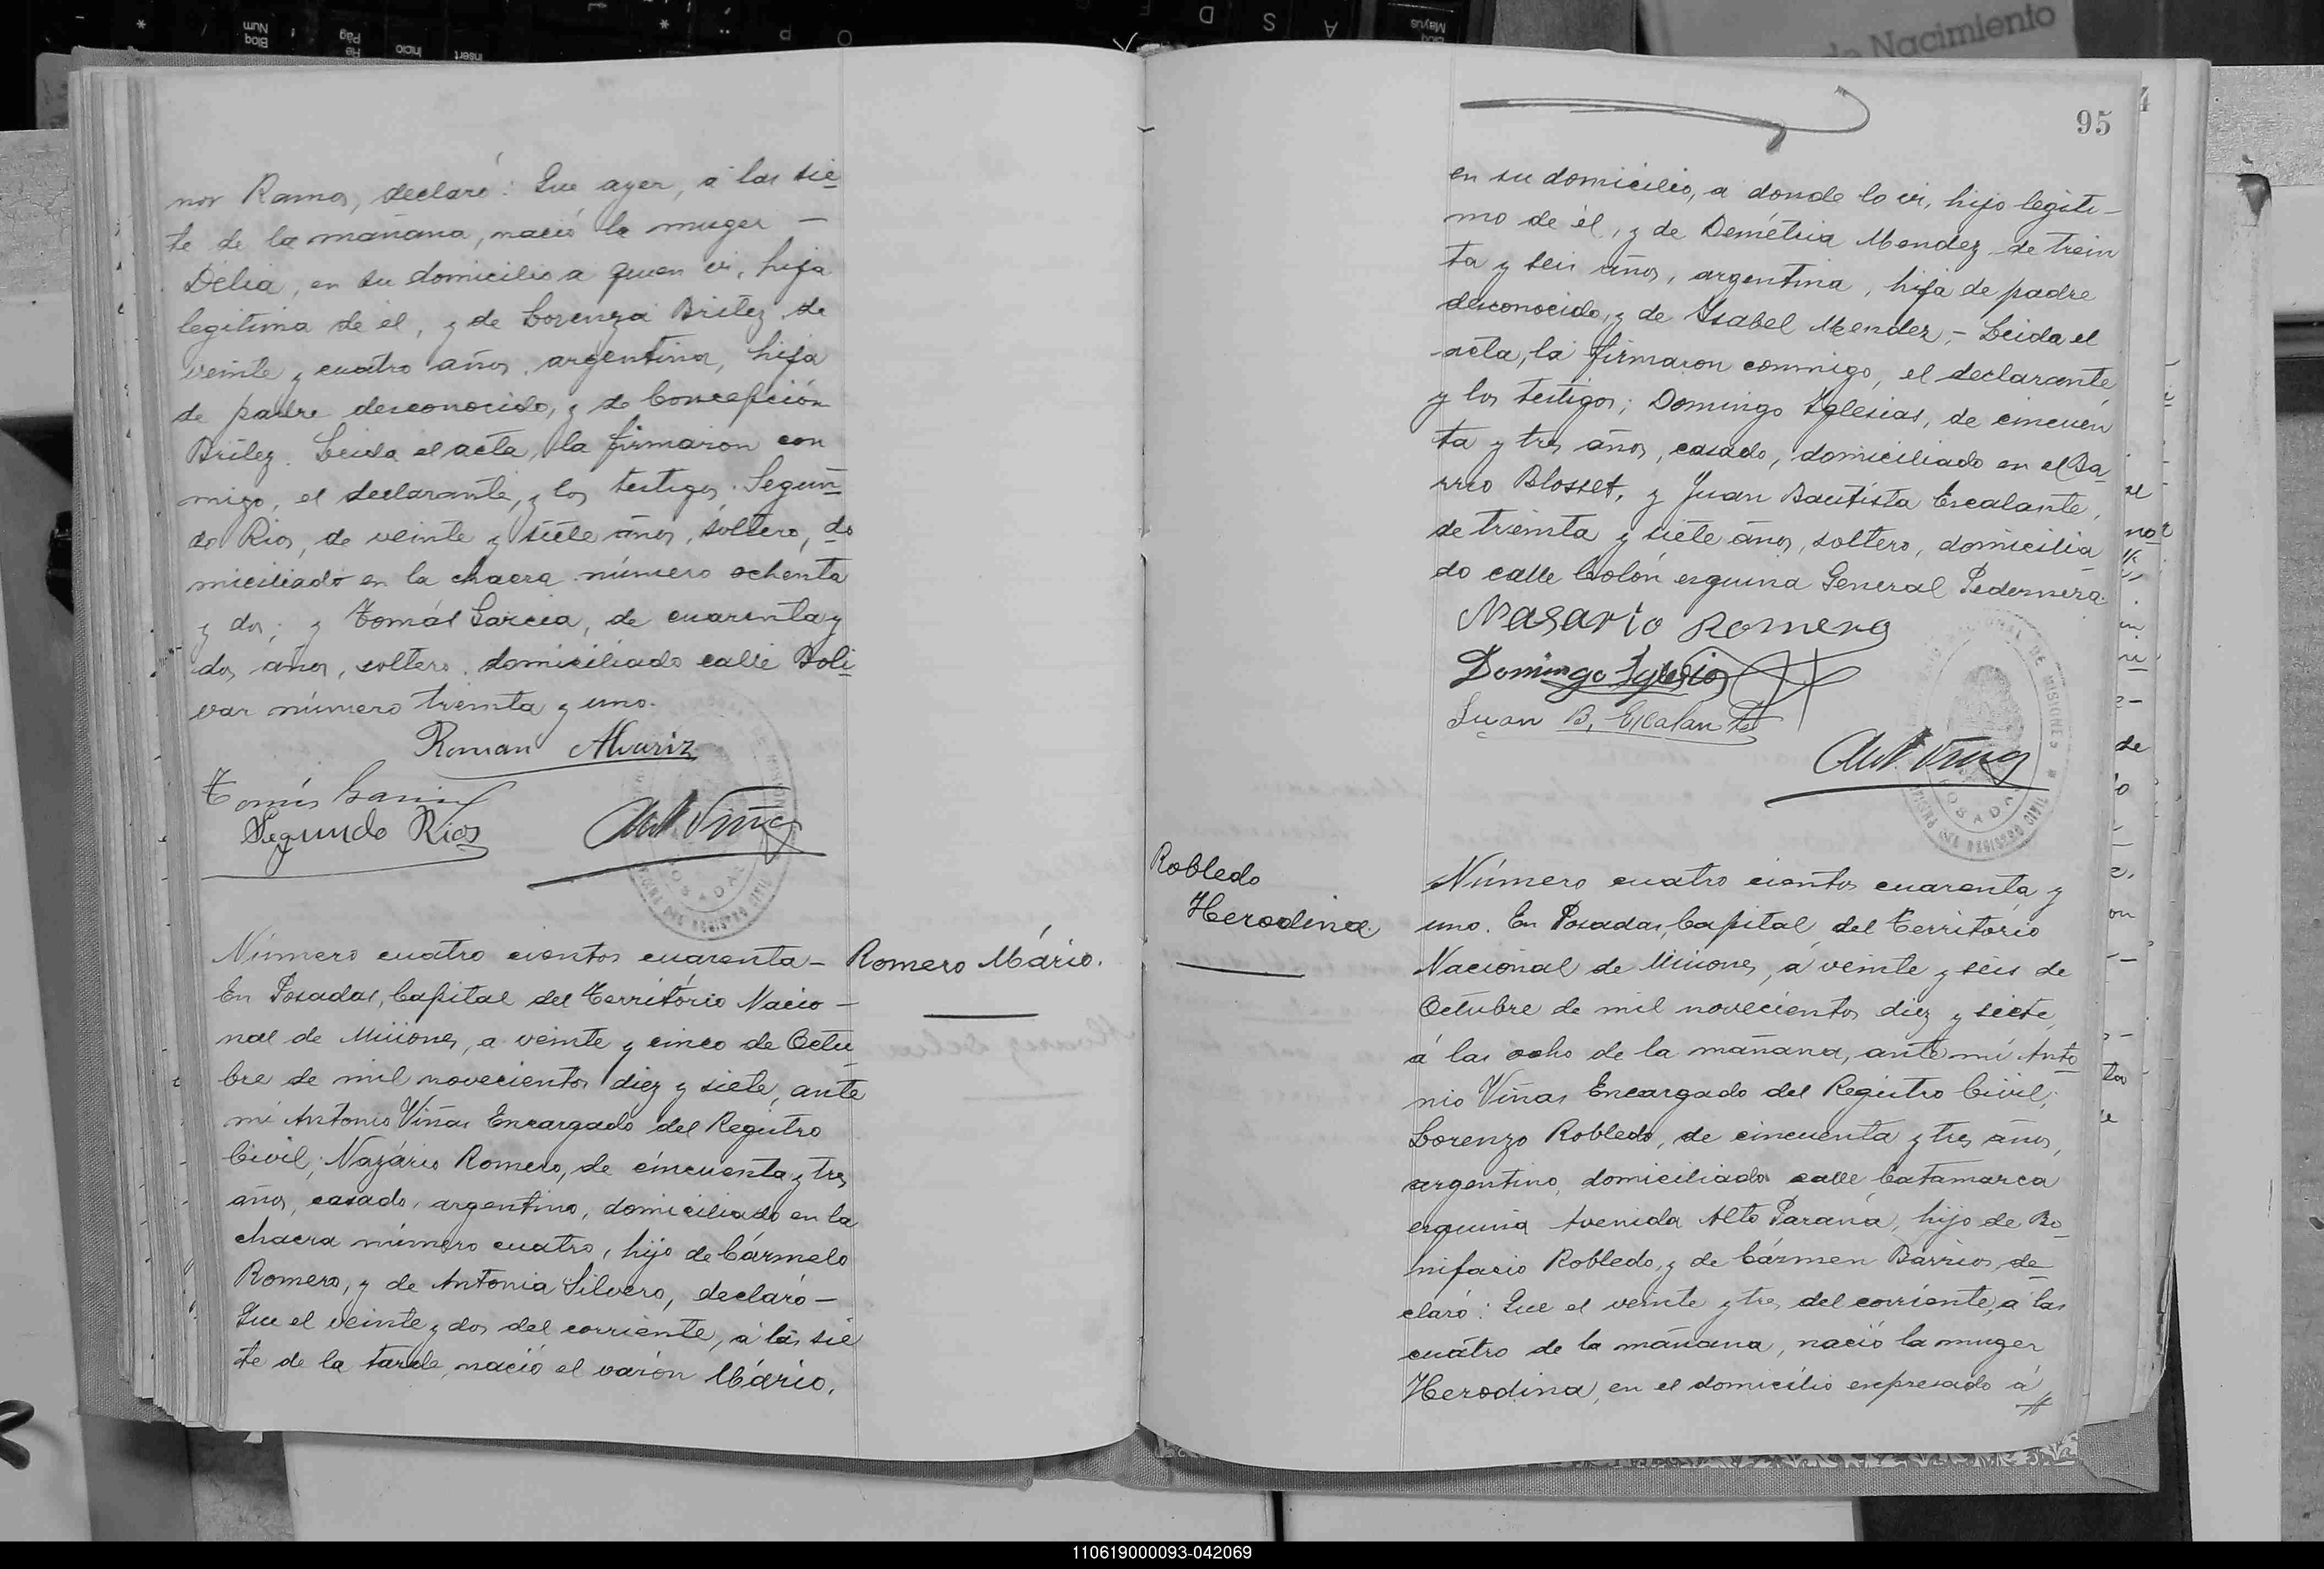 nor Ramos, declaró: Que ayer, a las sie
te de la mañana, nació la muger —
Délia, en su domicilio a quien vi, hija
legitima de él, y de Lorenza Britez de
veinte y cuatro años, argentina, hija
de padre desconocido, y de Concepción
Britez. Leida el acta, la firmaron con
migo, el declarante, y los testigos. Segun
do Rios, de veinte y siete años, soltero, do
miciliado en la chacra número ochenta
y dos; y Tomás Garcia, de cuarenta y
dos años, soltero, domiciliado calle Boli
var número treinta y uno.
Roman Alvariz
Tomás Garcia
Segundo Rios
Ant Viñas
Número cuatro cientos cuarenta —
En Posadas, Capital del Território Nacio —
nal de Misiones, a veinte y cinco de Octu
bre de mil novecientos diez y siete, ante
mi Antonio Viñas Encargado del Registro
Civil; Nazário Romero, de cincuenta y tres
años, casado, argentino, domiciliado en la
chacra número cuatro, hijo de Cármelo
Romero, y de Antonia Silvero, declaró —
Que el veinte y dos del corriente, a las sie
te de la tarde, nació el varón Mário,
Romero Mário.
95
en su domicilio, a donde lo vi, hijo legiti —
mo de él, y de Demétria Mendez de trein
ta y seis años, argentina, hija de padre
desconocido, y de Ysabel Mendez, — Leida el
acta, la firmaron conmigo, el declarante
y los testigos; Domingo Yglesias, de cincuen
ta y tres años, casado, domiciliado en el Ba
rrio Blosset, y Juan Bautista Escalante,
de treinta y siete años, soltero, domicilia
do calle Colón esquina General Pedernera.
Nasario Romero
Domingo Iglesias
Juan B. Escalante
Ant Viñas
Robledo
Herodina
Número cuatro cientos cuarenta y
uno. En Posadas, Capital del Território
Nacional de Misiones, a veinte y seis de
Octubre de mil novecientos diez y siete,
á las ocho de la mañana, ante mí Anto
nio Viñas Encargado del Registro Civil;
Lorenzo Robledo, de cincuenta y tres años,
argentino, domiciliado calle Catamarca
esquina Avenida Alto Paraná, hijo de Bo
nifacio Robledo, y de Cármen Barrios, de
claró: Que el veinte y tres del corriente, a las
cuátro de la mañana, nació la muger
Herodina, en el domicilio expresado á
de Nacimiento
110619000093-042069